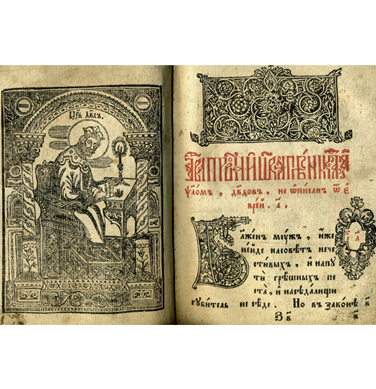 Цр҃ь Дв҃дъ.
ѱалом, дв҃довъ, не ѡписан ѿ є
врей. а҃.
Блаженъ моужъ, иже
неиде насовѣтъ нече
стивыхъ, и напу
ти грѣшныхъ не
ста, и насѣдалищи
губитель не сѣде. Но въ законѣ